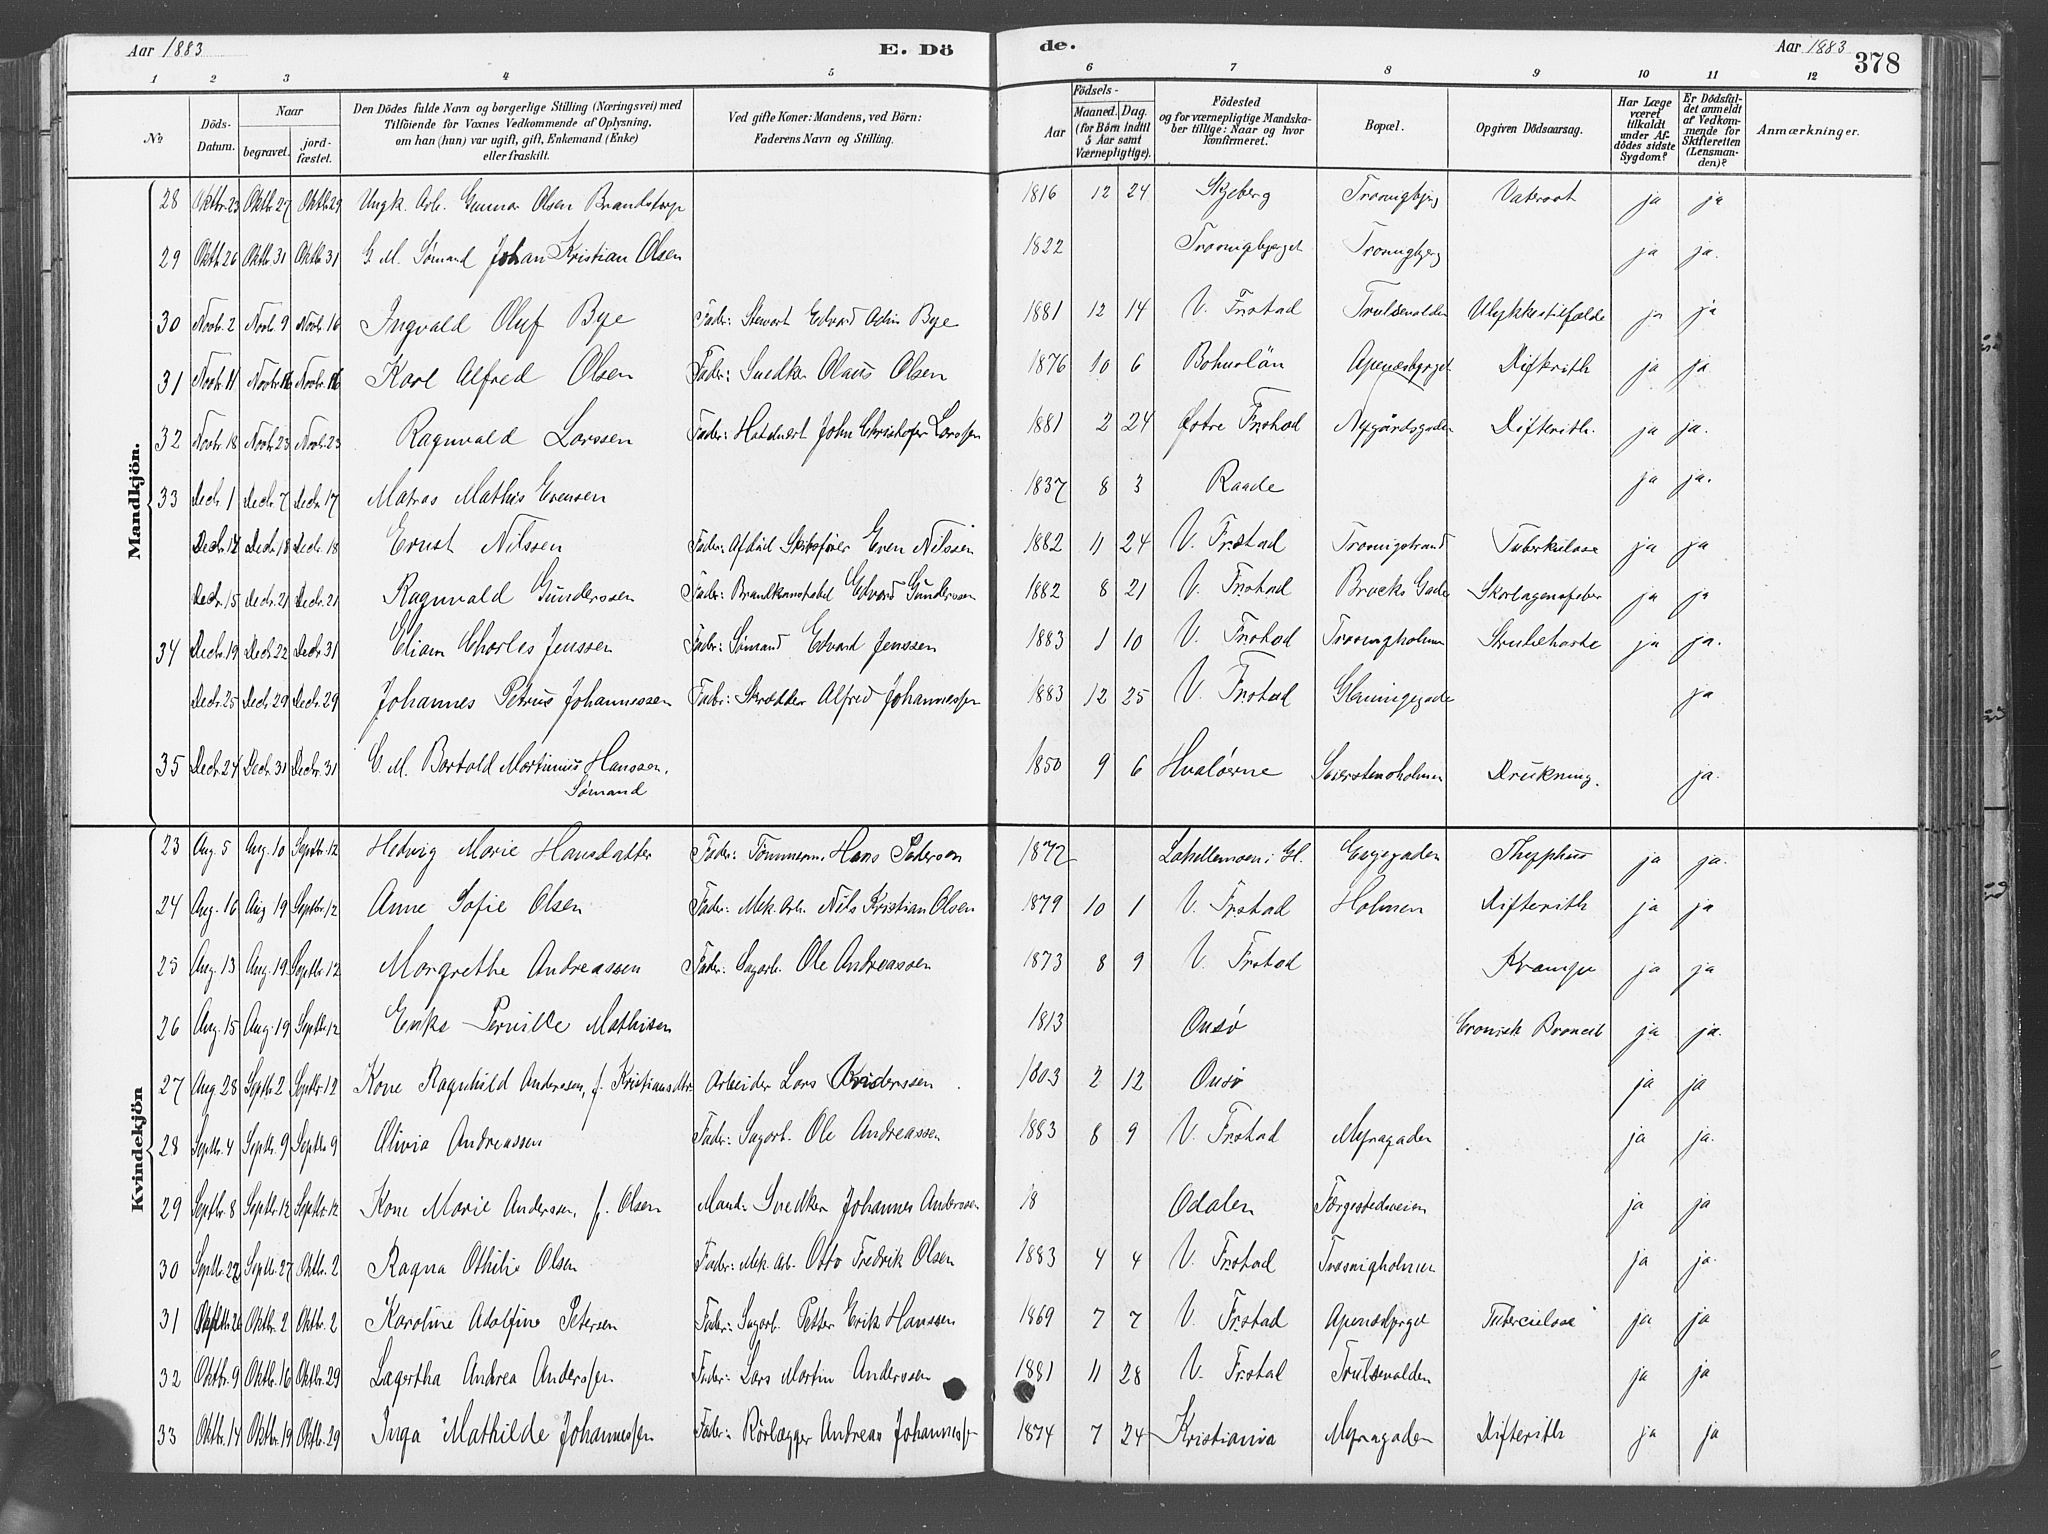 Aar 1883 E. Dö de. Aar 1883 378
1 2 3 4 5 6 7 8 9 10 11 12
No Döds-Datum. Naar begravet. jordfæstet. Den Dödes fulde Navn og borgerlige Stilling (Næringsvei) med Tilföiende for Voxnes Vedkommende af Oplysning, om han (hun) var ugift, gift, Enkemand (Enke) eller fraskilt. Ved gifte Koner: Mandens, ved Börn: Faderens Navn og Stilling. Födsels- Aar Maaned. Dag. (for Börn indtil 5 Aar samt Værnepligtige). Födested og for værnepligtige Mandskaber tillige: Naar og hvor konfirmeret. Bopæl. Opgiven Dödsaarsag. Har Læge været tilkaldt under Afdödes sidste Sygdom? Er Dödsfaldet anmeldt af Vedkommende for Skifteretten (Lensmanden)? Anmærkninger.
Mandkjön.
28 Oktbr. 23 Oktbr. 27 Oktbr. 29 Ungk. Arb. Gunnar Olsen Brandstorp 1816 12 24 Skjeberg Trosvigbjerg Vatersot ja ja
29 Oktb. 26 Oktbr. 31 Oktb. 31 G. M. Sømand Johan Kristian Olsen 1822 Trosvigbjerget Trosvigbjerg ja ja.
30 Novbr. 2 Novbr. 9 Novbr. 16 Ingvald Oluf Bye Fader: Stewart Edvard Adin Bye 1881 12 14 V. Frstad Trulsevolden Ulykkestilfælde ja ja
31 Novbr. 11 Novbr. 16 Novbr. 16 Karl Alfred Olsen Fader: Snedker Olaus Olsen 1876 10 6 Bohuslän Apenæsbjerget Difterith ja ja
32 Novbr. 18 Novbr. 23 Novbr. 23 Ragnvald Larssen Fader: John Christofer Larssen 1881 2 24 Østre Frstad Nygårdsgaden Difterith. ja ja.
33 Decbr. 1 Decbr. 7 Decbr. 17 Matros Mathis Evensen 1837 8 3 Raade ja ja.
Decbr. 12 Decbr. 18 Decbr. 18 Ernst Nilssen Fader: Afdød Skibsfører Even Nilssen 1882 11 24 V. Frstad Trosvigstrand Tuberkulose ja ja
Decbr. 15 Decbr. 21 Decbr. 21 Ragnvald Gunderssen Fader: Brandkonstabel Edvard Gunderssen 1882 8 21 V. Frstad Brocks Gade Skarlagensfeber ja ja
34 Decbr. 19 Decbr. 22 Decbr. 31 Eliam Charles Jenssen Fader: Sømand Edvard Jenssen 1883 1 10 V. Frstad Trosvigholmen Strubehoste ja ja.
Decbr. 25 Decbr. 29 Decbr. 29 Johannes Petrus Johannessen Fader: Skrædder Alfred Johannessen 1883 12 25 V. Frstad ja
35 Decbr. 24 Decbr. 31 Decbr. 31 G. M. Bartold Martinius Hanssen, 1850 9 6 Hvaløerne Seierstensholmen Drukning. ja.
Sømand
Kvindekjön
23 Aug. 5 Aug. 10 Septbr. 12 Hedvig Marie Hansdatter Fader: Tømmerm. Hans Pedersen 1872 Engegaden Thyphus ja ja.
24 Aug. 16 Aug 19 Septbr. 12 Anne Sofie Olsen Fader: Mek. Arb. Nils Kristian Olsen 1879 10 1 V. Frstad Holmen Difterith ja ja
25 Aug. 13 Aug. 19 Septbr. 12 Margrethe Andreassen Fader: Sagarb. Ole Andreassen 1873 8 9 V. Frstad Krampe ja ja
26 Aug. 15 Aug. 19 Septbr. 12 Enke Pernille Mathisen 1813 Onsø Cronisk Broncit ja ja.
27 Aug. 28 Septbr. 2 Septbr. 12 Kone Ragnhild Anderssen, f. Kristiansdtr. Arbeider Lars Anderssen 1803 2 12 Onsø ja ja
28 Septbr. 4 Septbr. 9 Septbr. 9 Olivia Andreassen Fader: Sagarb. Ole Andreassen 1883 8 9 V. Frstad Myragaden ja ja.
29 Septbr. 8 Septbr. 12 Septbr. 12 Kone Marie Anderssen, f. Olsen Mand: Snedker Johannes Anderssen 18 Odalen Færgestedsveien ja ja
30 Septbr. 22 Septbr. 27 Oktbr. 2 Ragna Othilie Olsen Fader: Mek. Arb. Otto Fredrik Olsen 1883 4 4 V. Frstad Trosvigholmen ja ja.
31 Septbr. 26 Oktbr. 2 Oktbr. 2 Karoline Adolfine Petersen Fader: Sagarb. Petter Erik Hanssen 1869 7 7 V. Frstad Apenæsbjerget Tuberculose ja ja
32 Oktbr. 9 Oktbr. 16 Oktbr. 29 Lagertha Andrea Anderssen Fader: Lars Martin Anderssen 1881 11 28 V. Frstad Trulsevolden ja ja
33 Oktbr. 14 Oktbr. 19 Oktbr. 29 Inga Mathilde Johannessen Fader: Rørlægger Andreas Johannessen 1874 7 24 Kristiania Myragaden Difterith ja ja